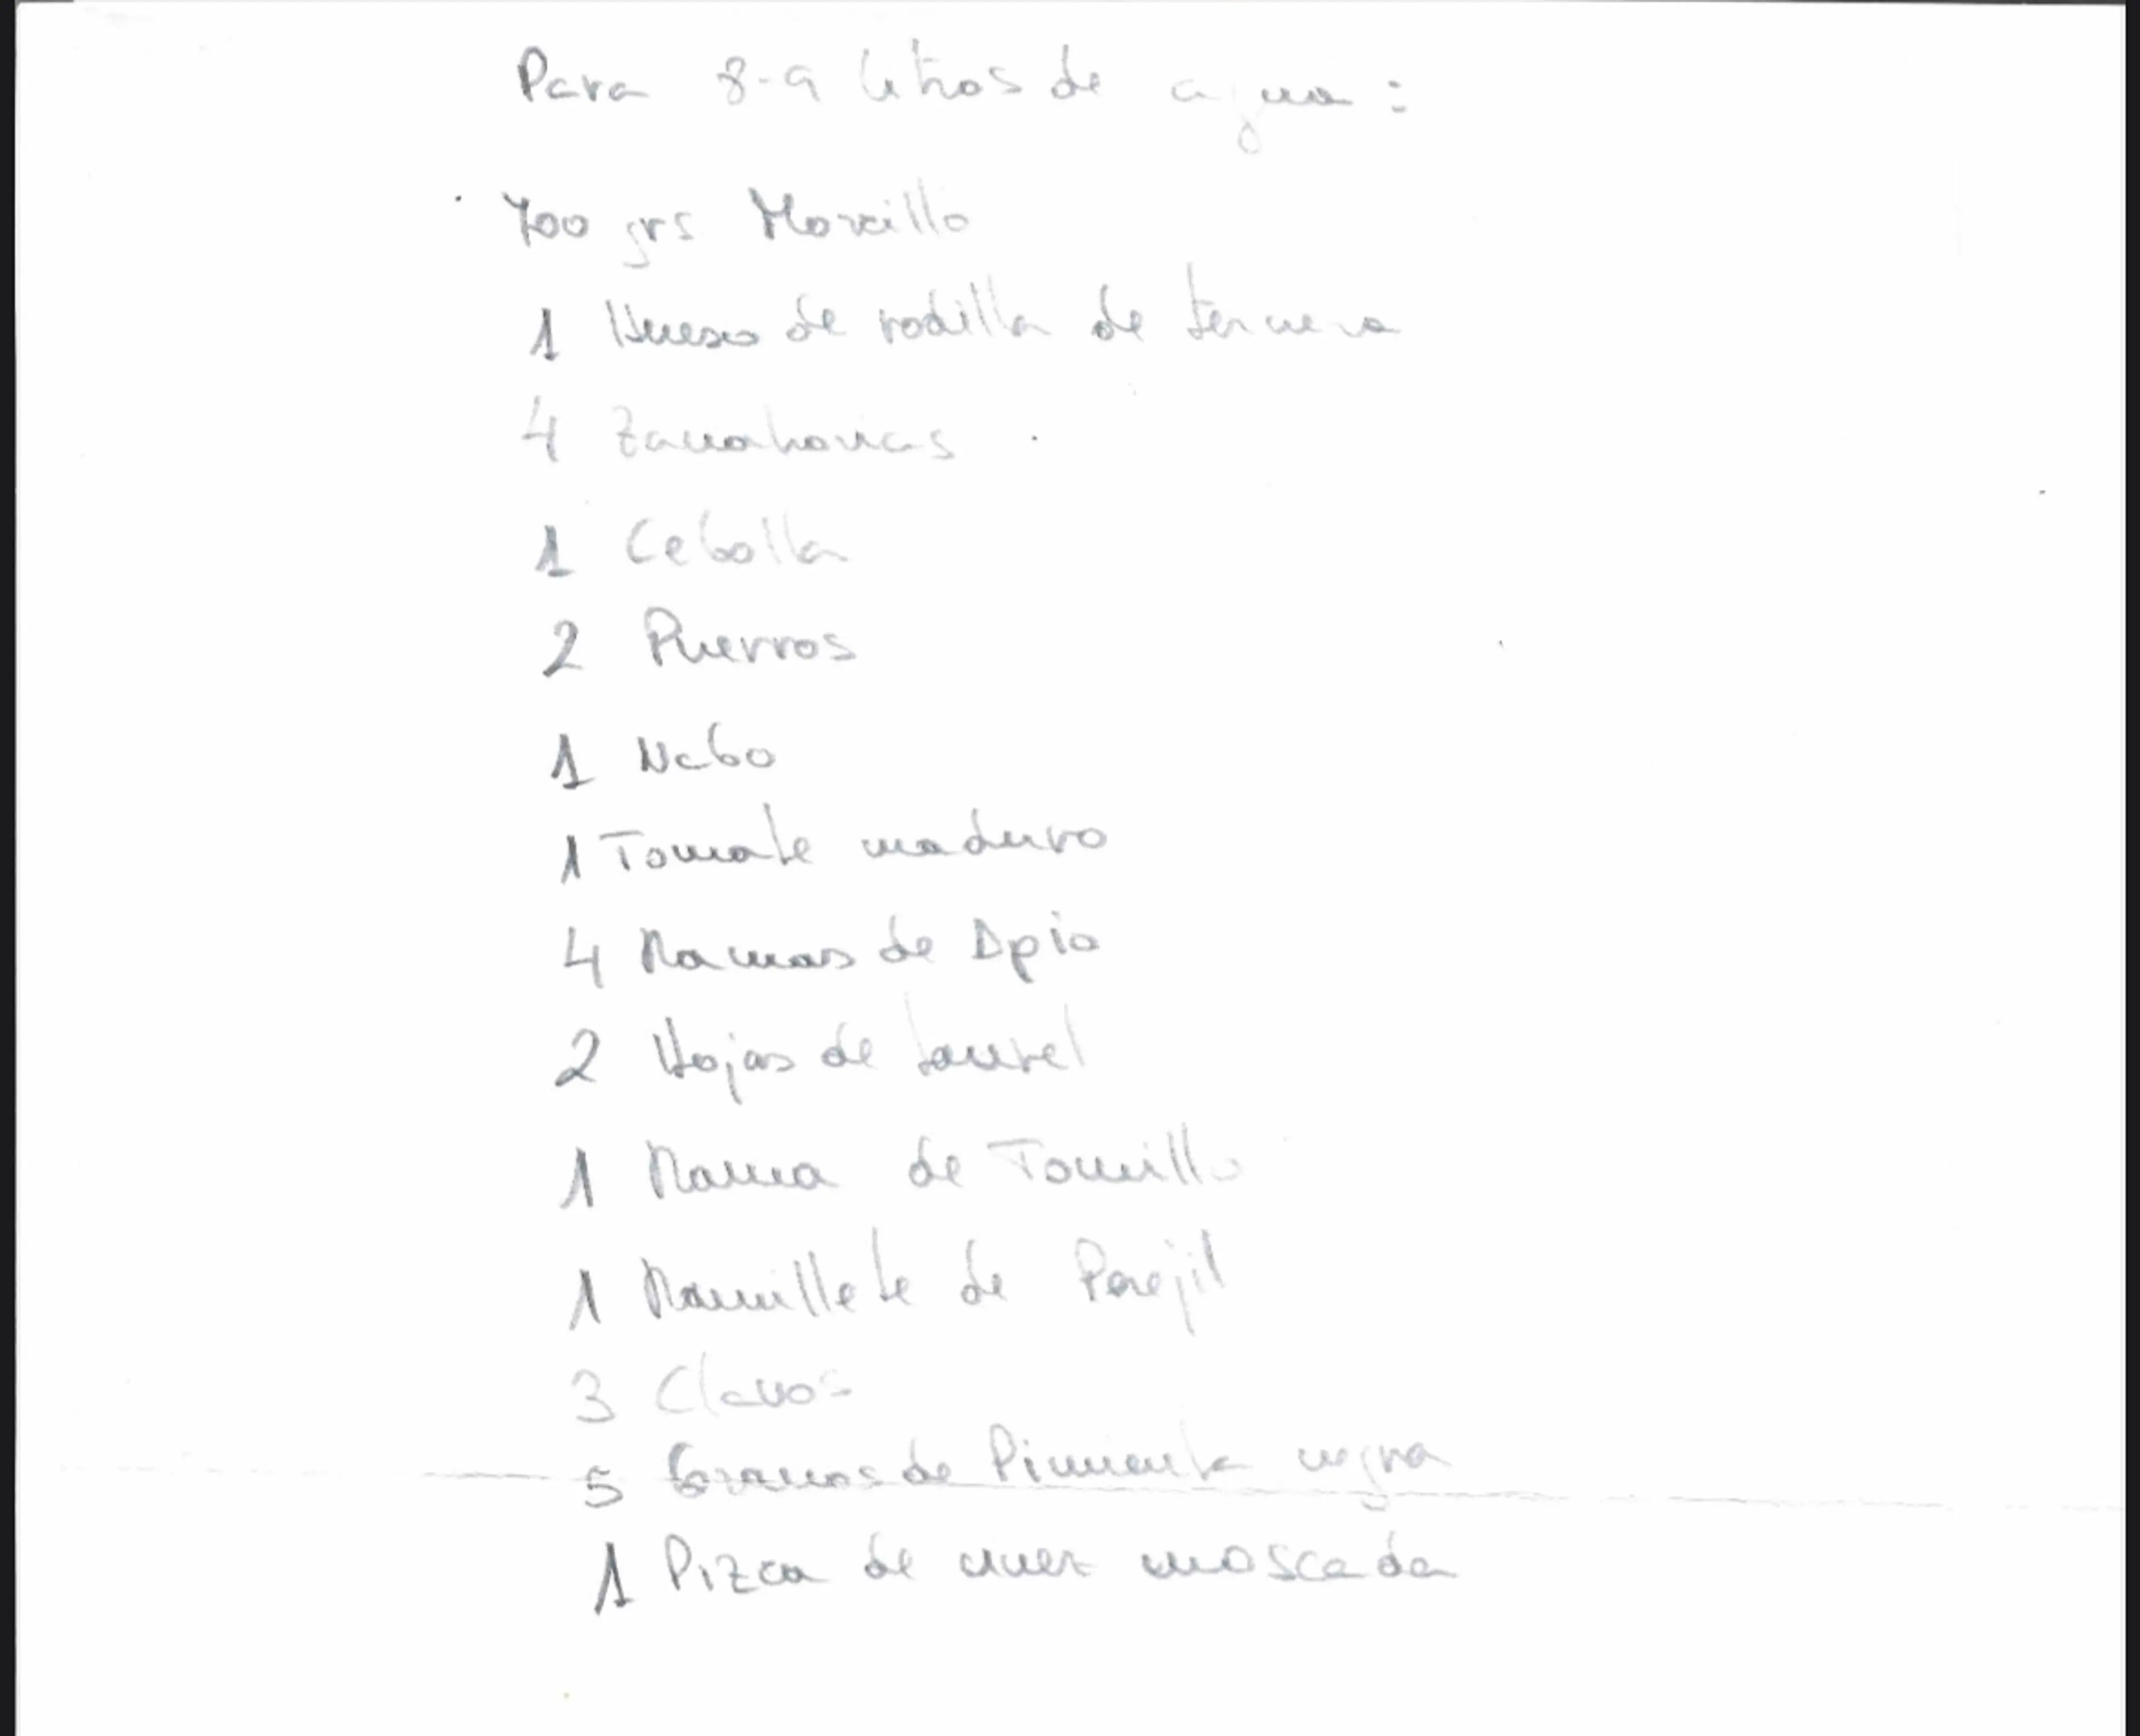 Para 8-9 litros de agua:
700 grs Morcillo
1 Hueso de rodilla de ternera
4 Zanahorias
1 Cebolla
2 Puerros
1 Nabo
1 Tomate maduro
4 Ramas de Apio
2 Hojas de Laurel
1 Rama de Tomillo
1 Ramillete de Perejil
3 Clavos
5 Granos de Pimienta negra
1 Pizca de nuez moscada